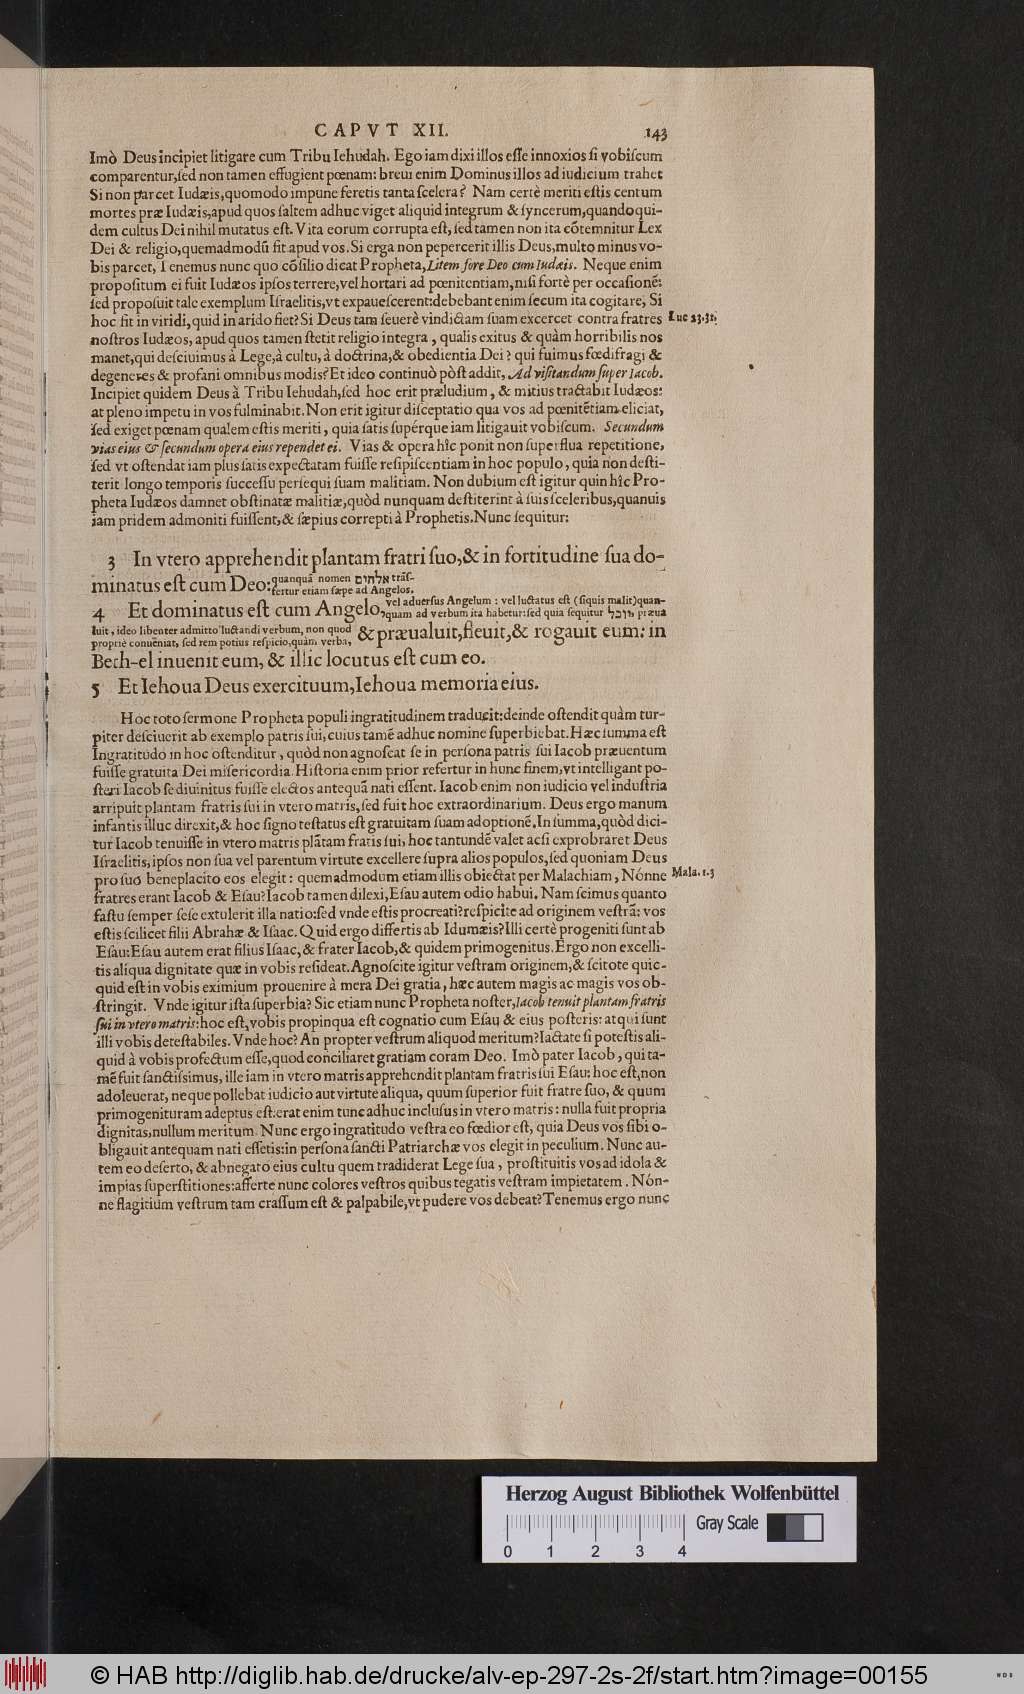 CAPVT XII. 143
Imò Deus incipiet litigare cum Tribu Iehudah. Ego iam dixi illos eſſe innoxios ſi vobiſcum
comparentur,ſed non tamen effugient pœnam: breui enim Dominus illos ad iudicium trahet
Si non parcet Iudæis,quomodo impune feretis tanta ſcelera? Nam certè meriti eſtis centum
mortes præ Iudæis,apud quos ſaltem adhuc viget aliquid integrum & ſyncerum,quandoqui-
dem cultus Dei nihil mutatus eſt. Vita eorum corrupta eſt, ſed tamen non ita cōtemnitur Lex
Dei & religio,quemadmodū fit apud vos. Si erga non pepercerit illis Deus,multo minus vo-
bis parcet, Tenemus nunc quo cōſilio dicat Propheta,Litem fore Deo cum Iudæis. Neque enim
propoſitum ei fuit Iudæos ipſos terrere,vel hortari ad pœnitentiam,niſi fortè per occaſionē:
ſed propoſuit tale exemplum Iſraelitis,vt expaueſcerent:debebant enim ſecum ita cogitare, Si
hoc fit in viridi,quid in arido fiet? Si Deus tam ſeuerè vindictam ſuam excercet contra fratres Luc 23.31.
noſtros Iudæos, apud quos tamen ſtetit religio integra , qualis exitus & quàm horribilis nos
manet,qui deſciuimus à Lege,à cultu, à doctrina,& obedientia Dei? qui fuimus fœdifragi &
degeneres & profani omnibus modis? Et ideo continuò pòſt addit, Ad viſitandum ſuper Iacob.
Incipiet quidem Deus à Tribu Iehudah,ſed hoc erit præludium, & mitius tractabit Iudæos:
at pleno impetu in vos fulminabit. Non erit igitur diſceptatio qua vos ad pœnitētiam eliciat,
ſed exiget pœnam qualem eſtis meriti, quia ſatis ſupérque iam litigauit vobiſcum. Secundum
vias eius & ſecundum opera eius rependet ei. Vias & opera hîc ponit non ſuperflua repetitione,
ſed vt oſtendat iam plus ſatis expectatam fuiſſe reſipiſcentiam in hoc populo, quia non deſti-
terit longo temporis ſucceſſu perſequi ſuam malitiam. Non dubium eſt igitur quin hîc Pro-
pheta Iudæos damnet obſtinatæ malitiæ,quòd nunquam deſtiterint à ſuis ſceleribus,quanuis
iam pridem admoniti fuiſſent,& ſæpius correpti à Prophetis. Nunc ſequitur:
3 In vtero apprehendit plantam fratri ſuo,& in fortitudine ſua do-
minatus eſt cum Deo: quanquā nomen אלהים trāſ-
fertur etiam ſæpe ad Angelos.
4 Et dominatus eſt cum Angelo, vel aduerſus Angelum : vel luctatus eſt (ſiquis malit)quan-
quam ad verbum ita habetur:ſed quia ſequitur ויוכל, præua
luit, ideo libenter admitto luctandi verbum, non quod
propriè conuēniat, ſed rem potius reſpicio,quàm verba, & præualuit,fleuit,& rogauit eum: in
Beth-el inuenit eum, & illic locutus eſt cum eo.
5 Et Iehoua Deus exercituum,Iehoua memoria eius.
Hoc toto ſermone Propheta populi ingratitudinem traducit:deinde oſtendit quàm tur-
piter deſciuerit ab exemplo patris ſui, cuius tamē adhuc nomine ſuperbiebat. Hæc ſumma eſt
Ingratitudo in hoc oſtenditur , quòd non agnoſcat ſe in perſona patris ſui Iacob præuentum
fuiſſe gratuita Dei miſericordia. Hiſtoria enim prior refertur in hunc finem,vt intelligant po-
ſteri Iacob ſe diuinitus fuiſſe electos antequā nati eſſent. Iacob enim non iudicio vel induſtria
arripuit plantam fratris ſui in vtero matris, ſed fuit hoc extraordinarium. Deus ergo manum
infantis illuc direxit,& hoc ſigno teſtatus eſt gratuitam ſuam adoptionē. In ſumma,quòd dici-
tur Iacob tenuiſſe in vtero matris plātam fratis ſui, hoc tantundē valet acſi exprobraret Deus
Iſraelitis,ipſos non ſua vel parentum virtute excellere ſupra alios populos,ſed quoniam Deus
pro ſuo beneplacito eos elegit: quemadmodum etiam illis obiectat per Malachiam, Nónne Mala. 1.3
fratres erant Iacob & Eſau? Iacob tamen dilexi, Eſau autem odio habui. Nam ſcimus quanto
faſtu ſemper ſeſe extulerit illa natio:ſed vnde eſtis procreati? reſpicite ad originem veſtrā: vos
eſtis ſcilicet filii Abrahæ & Iſaac. Quid ergo differtis ab Idumæis? Illi certè progeniti ſunt ab
Eſau:Eſau autem erat filius Iſaac,& frater Iacob,& quidem primogenitus. Ergo non excelli-
tis aliqua dignitate quæ in vobis reſideat. Agnoſcite igitur veſtram originem,& ſcitote quic-
quid eſt in vobis eximium prouenire à mera Dei gratia, hæc autem magis ac magis vos ob-
ſtringit. Vnde igitur iſta ſuperbia? Sic etiam nunc Propheta noſter,Iacob tenuit plantam fratris
ſui in vtero matris: hoc eſt,vobis propinqua eſt cognatio cum Eſau & eius poſteris: atqui ſunt
illi vobis deteſtabiles. Vnde hoc? An propter veſtrum aliquod meritum? Iactate ſi poteſtis ali-
quid à vobis profectum eſſe,quod conciliaret gratiam coram Deo. Imò pater Iacob, qui ta-
mē fuit ſanctiſſimus, ille iam in vtero matris apprehendit plantam fratris ſui Eſau: hoc eſt,non
adoleuerat, neque pollebat iudicio aut virtute aliqua, quum ſuperior fuit fratre ſuo, & quum
primogenituram adeptus eſt:erat enim tunc adhuc incluſus in vtero matris : nulla fuit propria
dignitas,nullum meritum. Nunc ergo ingratitudo veſtra eo fœdior eſt, quia Deus vos ſibi o-
bligauit antequam nati eſſetis:in perſona ſancti Patriarchæ vos elegit in peculium. Nunc au-
tem eo deſerto, & abnegato eius cultu quem tradiderat Lege ſua , proſtituitis vos ad idola &
impias ſuperſtitiones:afferte nunc colores veſtros quibus tegatis veſtram impietatem . Nón-
ne flagitium veſtrum tam craſſum eſt & palpabile,vt pudere vos debeat? Tenemus ergo nunc
Herzog August Bibliothek Wolfenbüttel
Gray Scale
0 1 2 3 4
© HAB http://diglib.hab.de/drucke/alv-ep-297-2s-2f/start.htm?image=00155